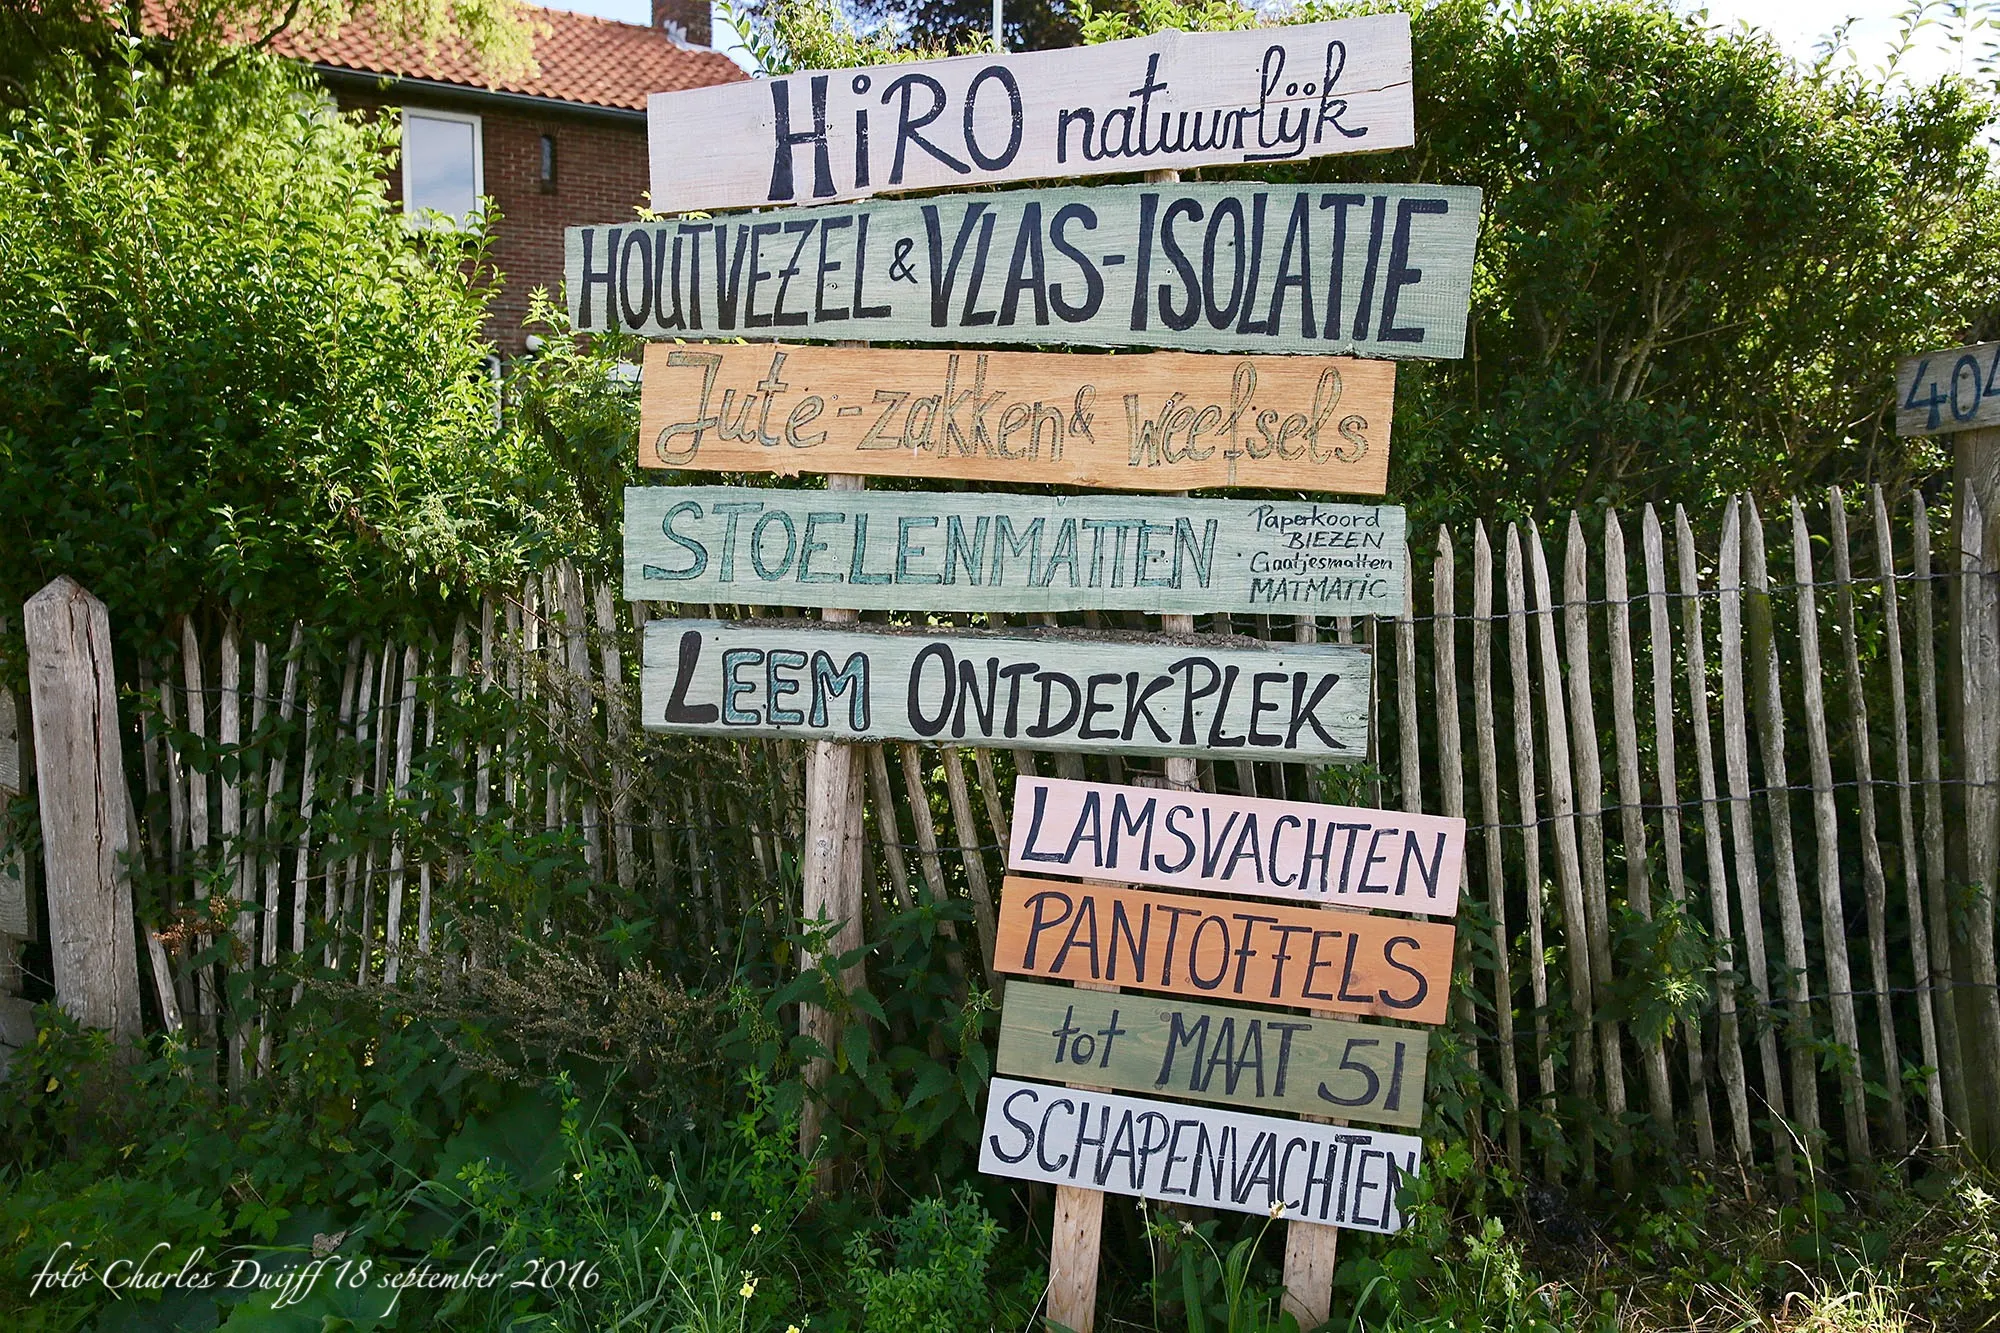 HiRO natuurlijk
HOUTVEZEL & VLAS-ISOLATIE
Jute-zakken & weefsels
STOELENMATTEN
Paperkoord
BIEZEN
Gaatjesmatten
MATMATIC
LEEM ONTDEKPLEK
LAMSVACHTEN
PANTOFFELS
tot MAAT 51
SCHAPENVACHTEN
404
foto Charles Duijff 18 september 2016